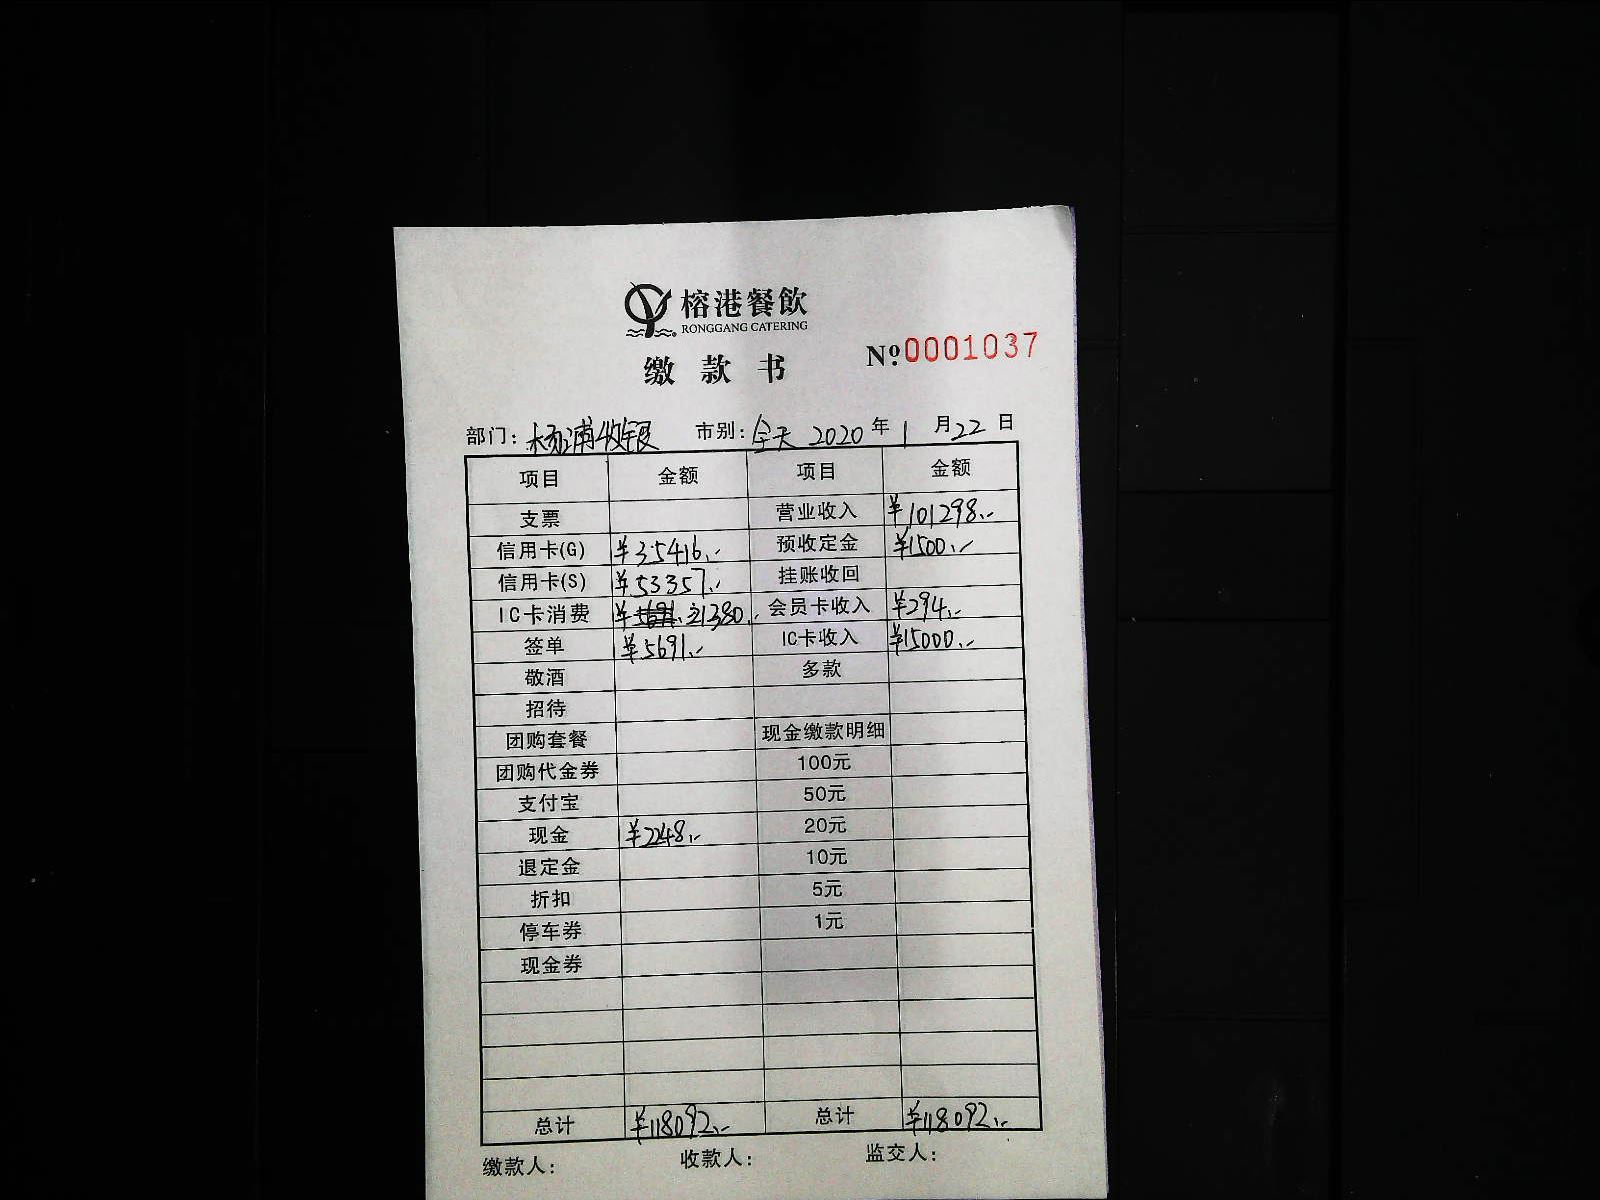 榕港餐飲
RONGGANG CATERING
缴款书 №0001037
部门: 杨浦收银 市别: 全天 2020 年 1 月 22 日
项目 金额 项目 金额
支票 营业收入 ¥101298.-
信用卡(G) ¥35416.- 预收定金 ¥1500.-
信用卡(S) ¥53357.- 挂账收回
IC卡消费 ¥21380.- 会员卡收入 ¥294.-
签单 ¥5691.- IC卡收入 ¥15000.-
敬酒 多款
招待
团购套餐 现金缴款明细
团购代金券 100元
支付宝 50元
现金 ¥2248.- 20元
退定金 10元
折扣 5元
停车券 1元
现金券
总计 ¥118092.- 总计 ¥118092.-
缴款人: 收款人: 监交人: